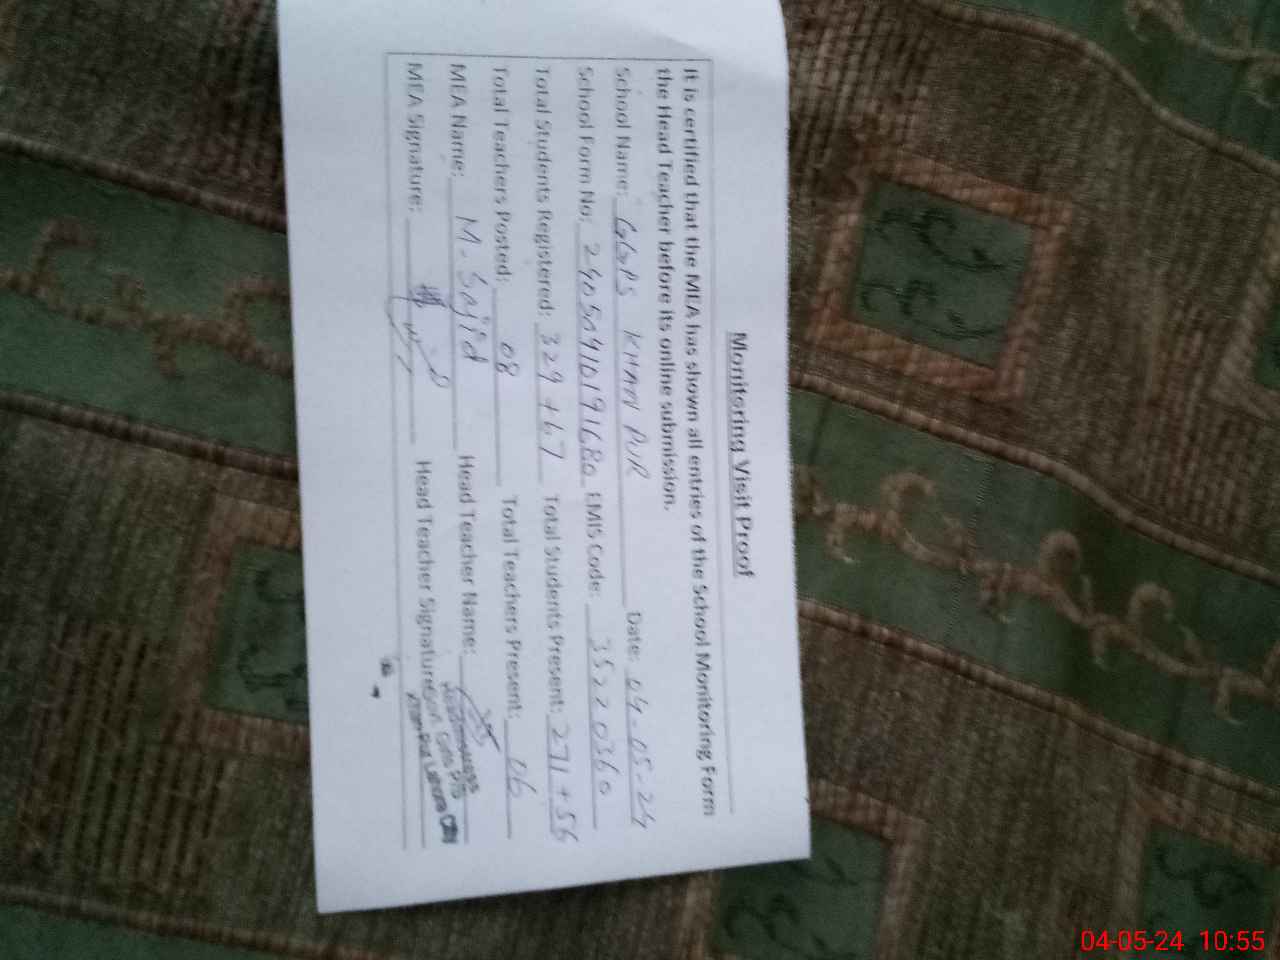 Monitoring Visit Proof
It is certified that the MEA has shown all entries of the School Monitoring Form
the Head Teacher before its online submission.
School Name: GGPS KHAN PUR Date: 04-05-24
School Form No: EMIS Code: 35220360
Total Students Registered: 329+67 Total Students Present: 271+56
Total Teachers Posted: 08 Total Teachers Present: 06
MEA Name: M. Sajid Head Teacher Name:
MEA Signature: Head Teacher Signature:
Headmistress
Govt Girls P/S
Khan Pur Lahore Cantt
04-05-24 10:55